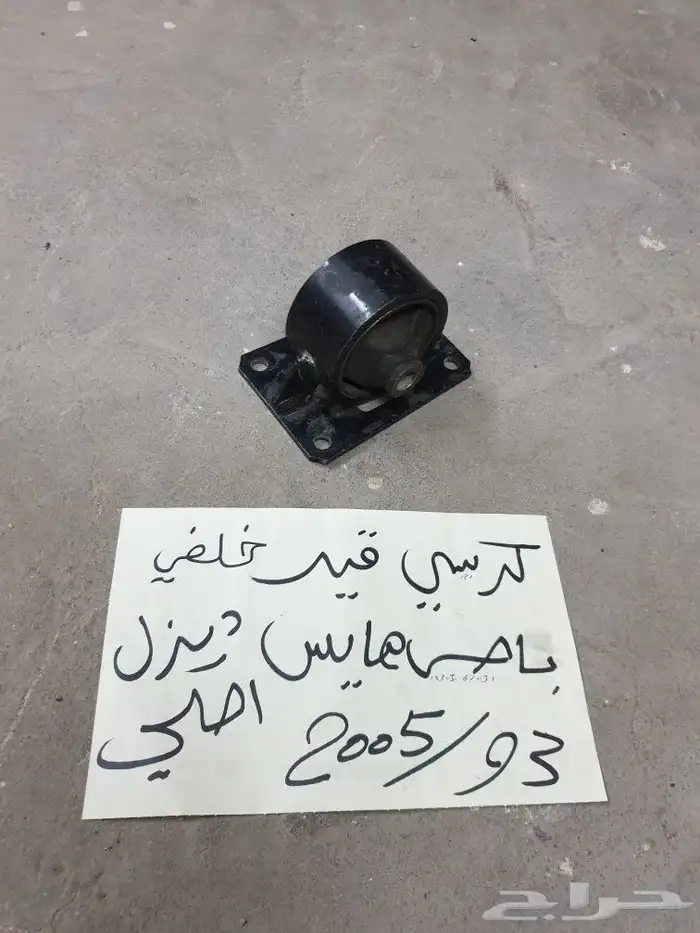 كرسي قير خلفي
باص هايس ديزل
2005/93 اصلي
حراج